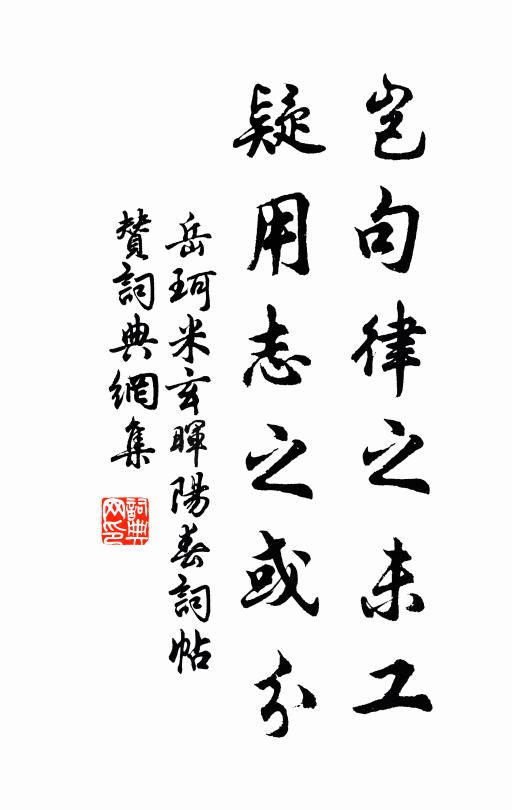 豈句律之未工
疑用志之或分
岳珂米玄暉陽春詞帖
贊詞典網集
詞典網印